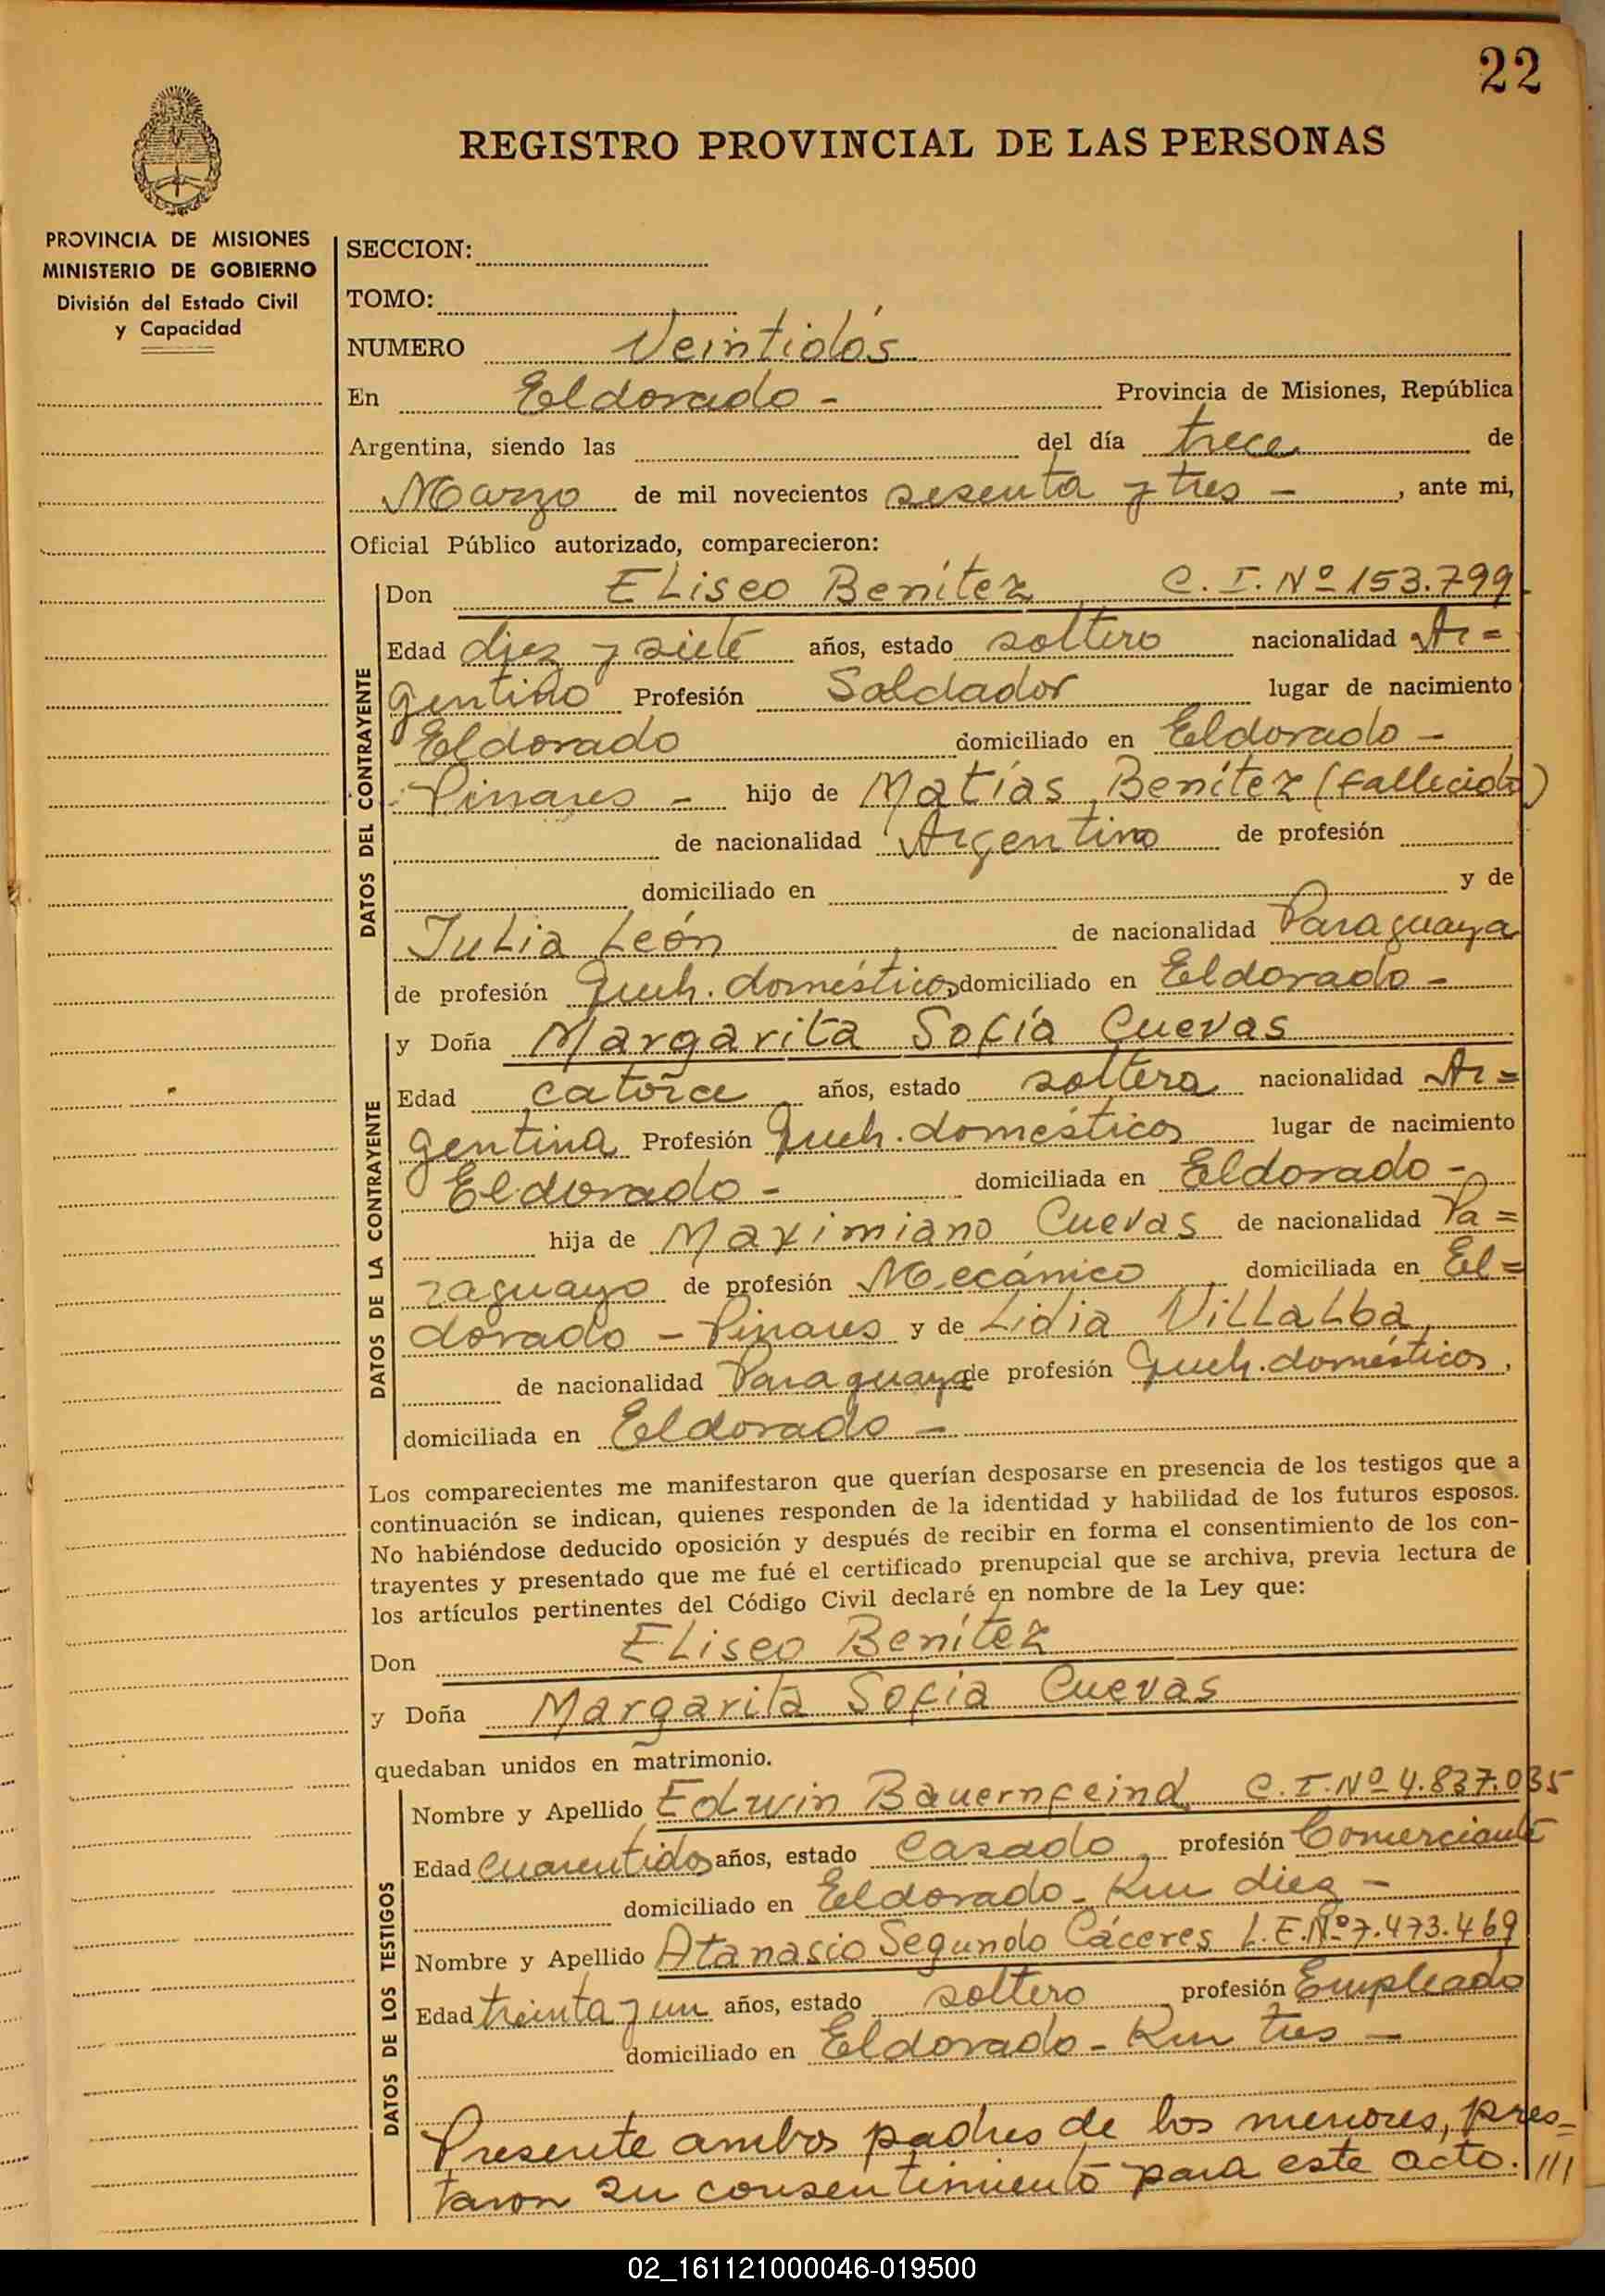 22
REGISTRO PROVINCIAL DE LAS PERSONAS
PROVINCIA DE MISIONES
MINISTERIO DE GOBIERNO
División del Estado Civil
y Capacidad
SECCION:
TOMO:
NUMERO Veintidós
En Eldorado - Provincia de Misiones, República
Argentina, siendo las del día trece de
Marzo de mil novecientos sesenta y tres - , ante mi,
Oficial Público autorizado, comparecieron:
DATOS DEL CONTRAYENTE
Don ELiseo Benítez C. I. Nº 153.799
Edad diez y siete años, estado soltero nacionalidad Ar=
gentino Profesión Soldador lugar de nacimiento
Eldorado domiciliado en Eldorado -
Pinares - hijo de Matías Benítez (fallecido)
de nacionalidad Argentino de profesión
domiciliado en y de
Julia León de nacionalidad Paraguaya
de profesión Queh. domésticos domiciliado en Eldorado -
DATOS DE LA CONTRAYENTE
y Doña Margarita Sofía Cuevas
Edad catorce años, estado soltera nacionalidad Ar=
gentina Profesión Queh. domésticos lugar de nacimiento
Eldorado - domiciliada en Eldorado -
hija de Maximiano Cuevas de nacionalidad Pa=
raguayo de profesión Mecánico domiciliada en El=
dorado - Pinares y de Lidia ViLLaLba
de nacionalidad Paraguaya de profesión Queh. domésticos,
domiciliada en Eldorado -
Los comparecientes me manifestaron que querían desposarse en presencia de los testigos que a
continuación se indican, quienes responden de la identidad y habilidad de los futuros esposos.
No habiéndose deducido oposición y después de recibir en forma el consentimiento de los con-
trayentes y presentado que me fué el certificado prenupcial que se archiva, previa lectura de
los artículos pertinentes del Código Civil declaré en nombre de la Ley que:
Don ELiseo Benítez
y Doña Margarita Sofía Cuevas
quedaban unidos en matrimonio.
DATOS DE LOS TESTIGOS
Nombre y Apellido Edwin Bauernfeind C. I. Nº 4.837.035
Edad cuarentidos años, estado casado, profesión Comerciante
domiciliado en Eldorado - Km diez -
Nombre y Apellido Atanasio Segundo Cáceres L. E. Nº 7.473.469
Edad treinta y un años, estado soltero profesión Empleado
domiciliado en Eldorado - Km tres -
Presente ambos padres de los menores, pres-
taron su consentimiento para este acto. ///
02_161121000046-019500